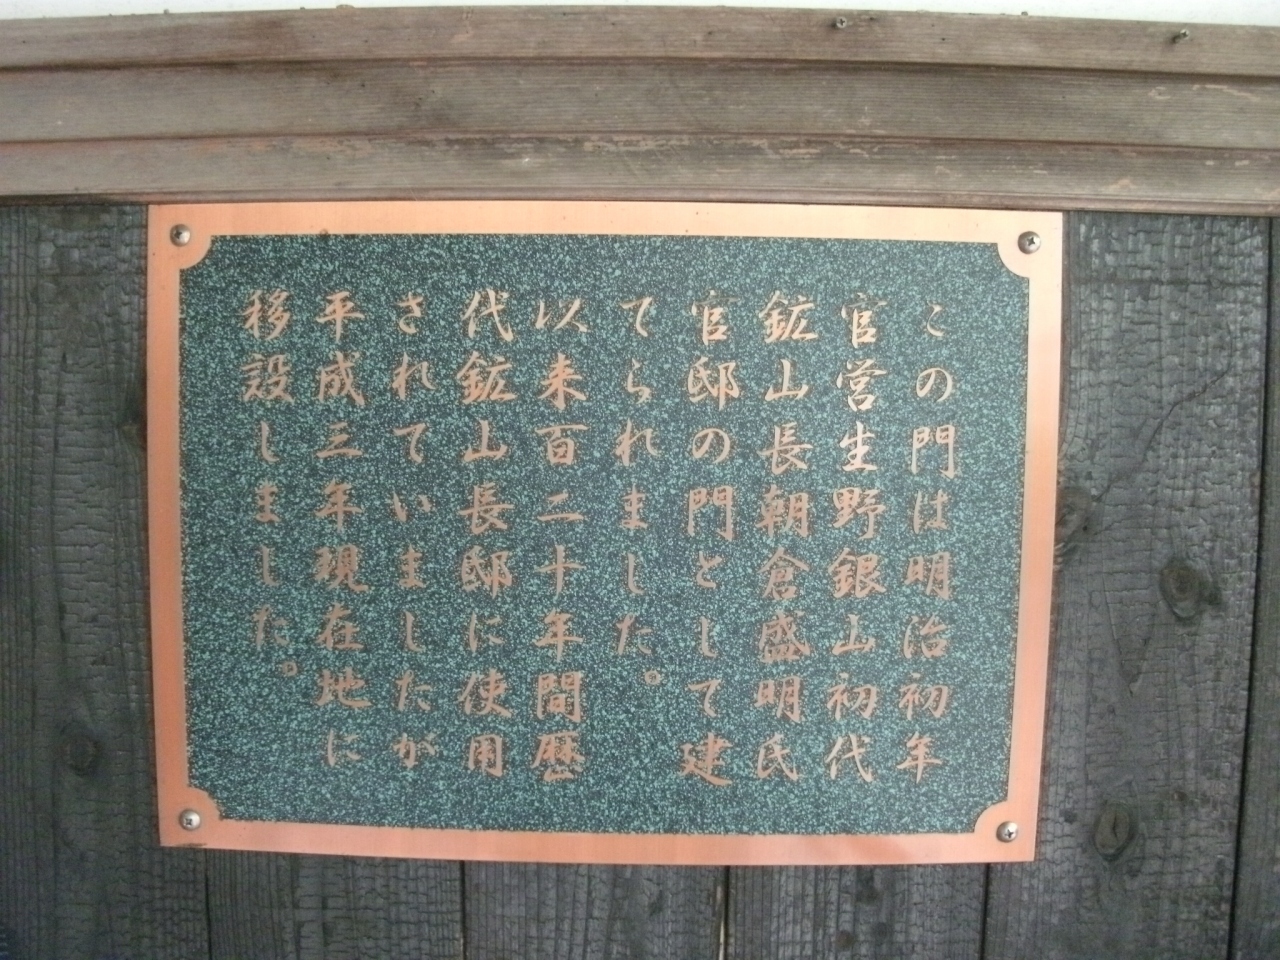 この門は明治初年
官営生野銀山初代
鉱山長朝倉盛明氏
官邸の門として建
てられました。
以来百二十年間歴
代鉱山長邸に使用
されていましたが
平成三年現在地に
移設しました。